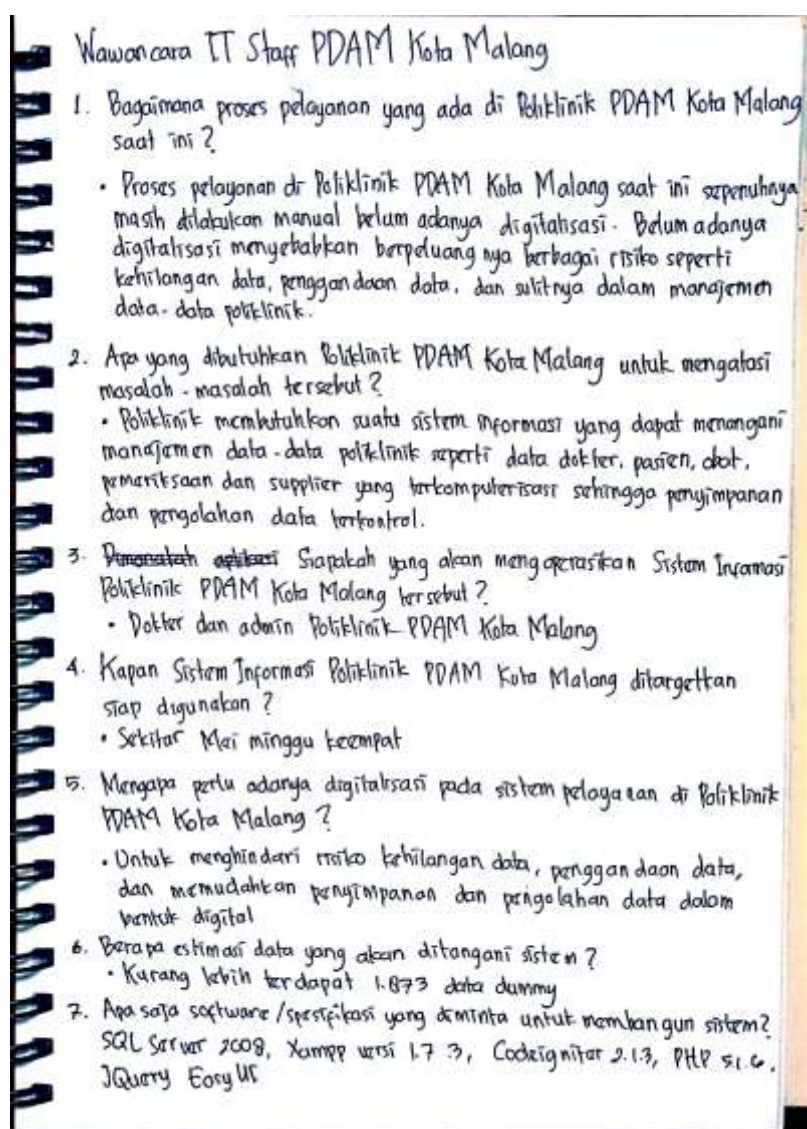 Wawancara IT Staff PDAM Kota Malang
1. Bagaimana proses pelayanan yang ada di Poliklinik PDAM Kota Malang
saat ini ?
• Proses pelayanan di Poliklinik PDAM Kota Malang saat ini sepenuhnya
masih dilakukan manual belum adanya digitalisasi. Belum adanya
digitalisasi menyebabkan berpeluang nya berbagai risiko seperti
kehilangan data, penggandaan data, dan sulitnya dalam manajemen
data-data poliklinik.
2. Apa yang dibutuhkan Poliklinik PDAM Kota Malang untuk mengatasi
masalah-masalah tersebut ?
• Poliklinik membutuhkan suatu sistem informasi yang dapat menangani
manajemen data-data poliklinik seperti data dokter, pasien, obat,
pemeriksaan dan supplier yang terkomputerisasi sehingga penyimpanan
dan pengolahan data terkontrol.
3. Siapakah yang akan mengoperasikan Sistem Informasi
Poliklinik PDAM Kota Malang tersebut ?
• Dokter dan admin Poliklinik PDAM Kota Malang
4. Kapan Sistem Informasi Poliklinik PDAM Kota Malang ditargetkan
siap digunakan ?
• Sekitar Mei minggu keempat
5. Mengapa perlu adanya digitalisasi pada sistem pelayanan di Poliklinik
PDAM Kota Malang ?
• Untuk menghindari risiko kehilangan data, penggandaan data,
dan memudahkan penyimpanan dan pengolahan data dalam
bentuk digital
6. Berapa estimasi data yang akan ditangani sistem ?
• Kurang lebih terdapat 1.873 data dummy
7. Apa saja software/spesifikasi yang diminta untuk membangun sistem?
SQL Server 2008, Xampp versi 1.7.3, Codeigniter 2.1.3, PHP 5.1.6,
JQuery Easy UI